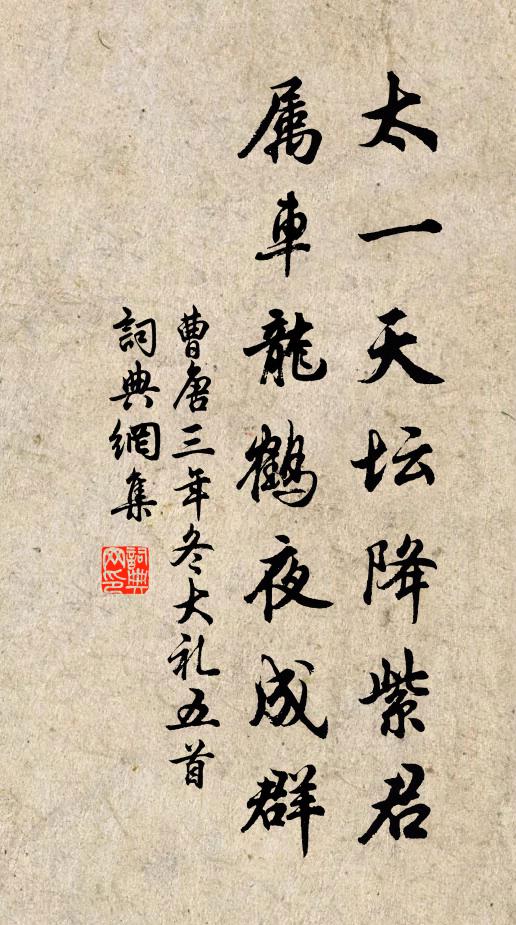 太一天坛降紫君
属车龍鶴夜成群
曹唐三年冬大礼五首
詞典網集
詞典网印